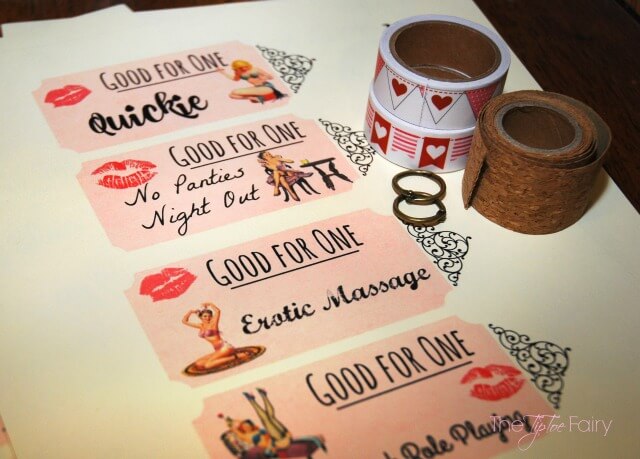 Good for One
Quickie
Good for One
No Panties
Night Out
Good for One
Erotic Massage
Good for One
Role Playing
The TipToe Fairy